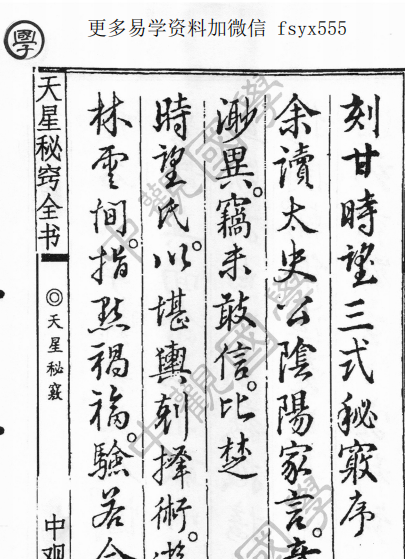 更多易学资料加微信 fsyx555
學
刻甘時望三式秘竅序
余讀太史公陰陽家言。
渺異。竊未敢信。比楚
時望氏。以堪輿剋擇術。
林雲间。指點禍福。驗若
天星秘窍全书
◎天星秘竅
中观
中觀國學
中觀國學